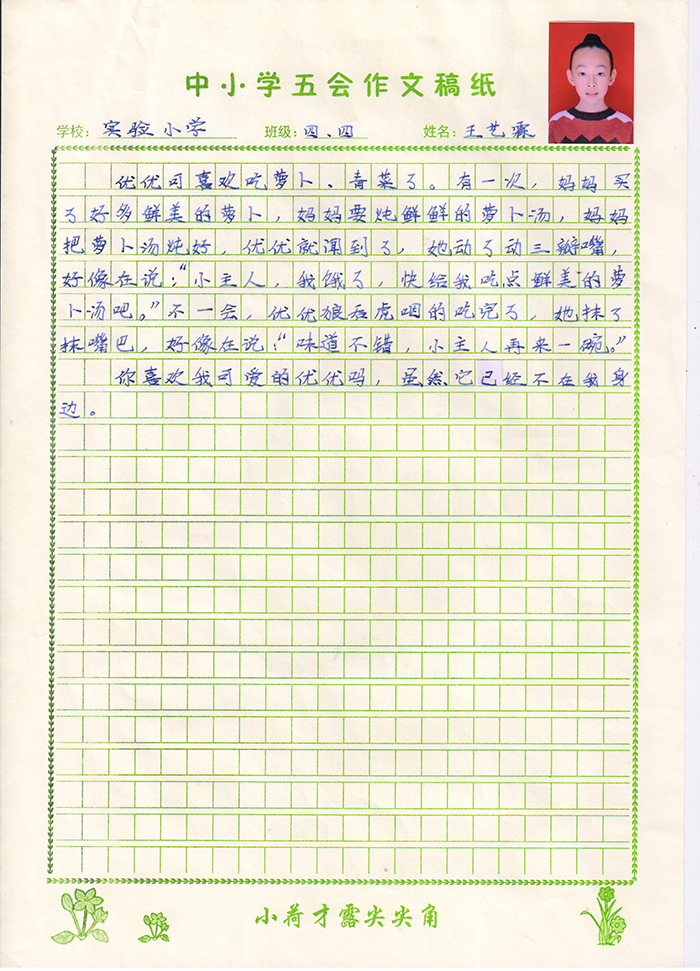 中小学五会作文稿纸
学校：实验小学 班级：四、四 姓名：王艺霖
优优可喜欢吃萝卜、青菜了。有一次，妈妈买
了好多鲜美的萝卜，妈妈要炖鲜鲜的萝卜汤，妈妈
把萝卜汤炖好，优优就闻到了，她动了动三瓣嘴，
好像在说：“小主人，我饿了，快给我吃点鲜美的萝
卜汤吧。”不一会，优优狼吞虎咽的吃完了，她抹了
抹嘴巴，好像在说：“味道不错，小主人再来一碗。”
你喜欢我可爱的优优吗，虽然它已经不在我身
边。
小荷才露尖尖角